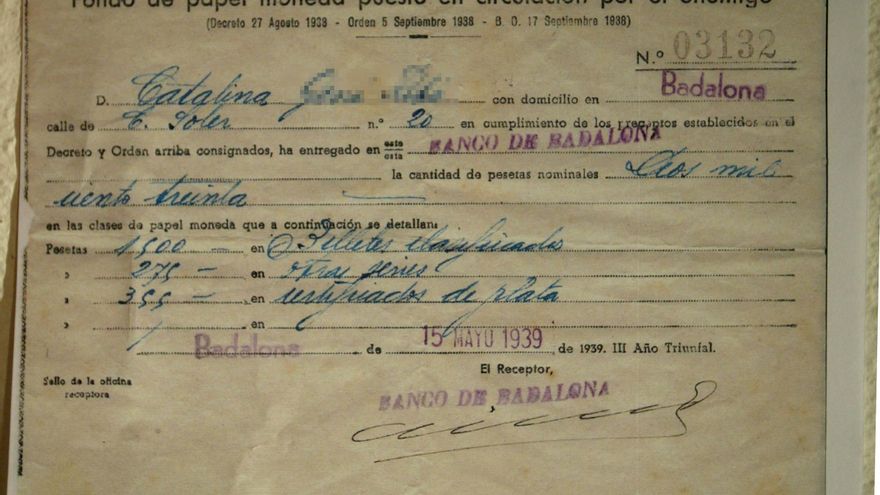 Fondo de papel moneda puesto en circulación por el enemigo
(Decreto 27 Agosto 1938 - Orden 5 Septiembre 1938 - B. O. 17 Septiembre 1938)
N.º 03132
D. Catalina con domicilio en Badalona
calle de C. Soler n.º 20 en cumplimiento de los preceptos establecidos en el
Decreto y Orden arriba consignados, ha entregado en este/esta BANCO DE BADALONA
la cantidad de pesetas nominales Dos mil
ciento treinta
en las clases de papel moneda que a continuación se detallan:
Pesetas 1,500 — en Billetes clasificados
» 275 — en otras series
» 355 — en certificados de plata
» en
Badalona de 15 MAYO 1939 de 1939. III Año Triunfal.
El Receptor,
Sello de la oficina
receptora
BANCO DE BADALONA